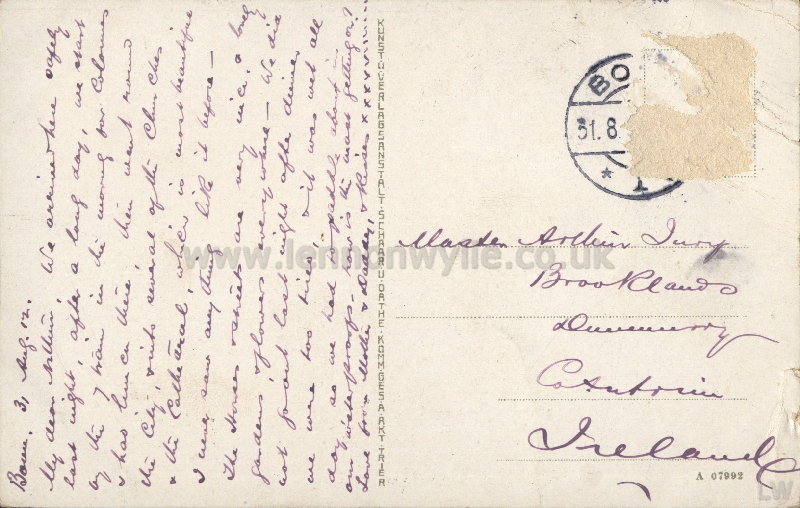 Bonn. 31, Aug. 12.
My dear Arthur, We arrived here safely
last night, after a long day, we start
by the 7 train in the morning for Cologne
& has lunch there, then went round
the City, & into several of the Churches
& the Cathedral, which is most beautiful
I never saw anything like it before —
The Houses & streets are very nice, & lovely
gardens, & flowers everywhere — We did
not go out last night after dinner
we were too tired, & it was wet all
day, so we had to paddle about in
our waterproofs — how is the mast getting on?
Love from Mother & Daddy, & Kisses xxxxxx
KUNST U. VERLAGSANSTALT SCHAAR U. DATHE · KOMM.-GES. A. AKT. TRIER
BO
31.8
* T
Master Arthur Jury
Brooklands
Dunmurry
Co Antrim
Ireland
A 07992
www.lennonwylie.co.uk
LW